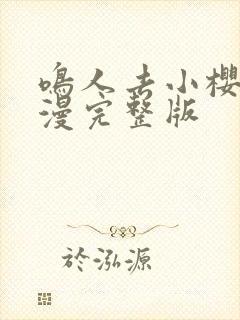 鳴人去小櫻
漫完整版
於泓源